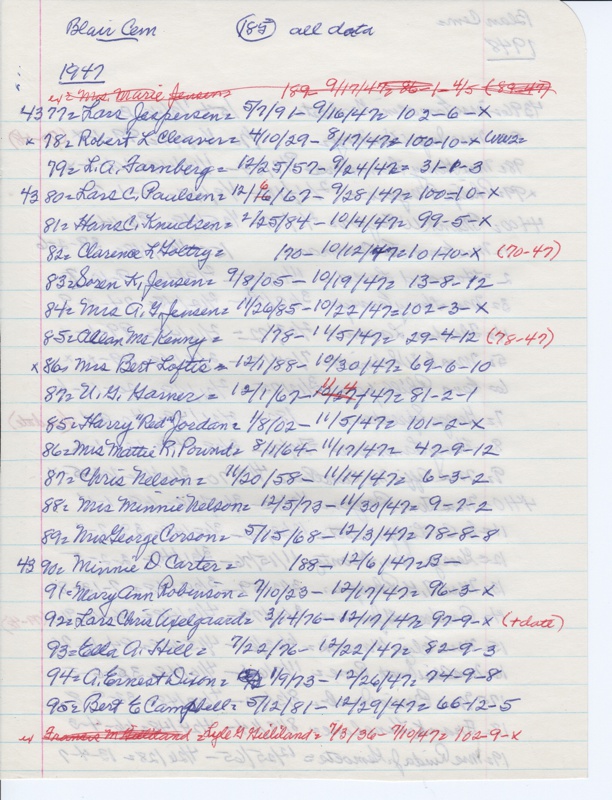 Blair Cem 185 all data
1947
ex = Mrs. Marie Jensen = 189- 9/17/47= 86-1-4/5 (89-47)
4377= Lars Jaspersen= 5/7/91- 9/16/47= 102-6-X
x 78= Robert L Cleaver= 4/10/29- 8/17/47= 100-10-X WW2=
79= L.A. Farnberg= 12/25/57- 9/24/47= 31-1-3
43 80= Lars C. Paulsen= 12/16/67- 9/28/47= 100-10-X
81= Hans C. Knudsen= 2/25/84- 10/4/47= 99-5-X
82= Clarence F. Goltry= 170- 10/12/47= 101-10-X (70-47)
83= Soren K. Jensen= 9/8/05- 10/19/47= 13-8-12
84= Mrs A. G. Jensen= 11/26/85- 10/22/47= 102-3-X
85= Allan McKenny= 178- 11/5/47= 29-4-12 (78-47)
x 86= Mrs Bert Loftis= 12/1/88- 10/30/47= 69-6-10
87= U. G. Garner= 12/1/67- 11/4/47= 81-2-1
85= Harry "Red" Jordan= 1/8/02- 11/5/47= 101-2-X
86= Mrs Mattie R. Pound= 8/1/64- 11/17/47= 47-9-12
87= Chris Nelson= 11/20/58- 11/14/47= 6-3-2
88= Mrs Minnie Nelson= 12/5/73- 11/30/47= 9-7-2
89= Mrs George Corson= 5/15/68- 12/3/47= 78-8-8
43 90= Minnie D Carter= 188- 12/6/47= B-
91= Mary Ann Robinson= 7/10/23- 12/17/47= 96-3-X
92= Lars Chris Axelgaard= 3/14/76- 12/17/47= 97-9-X (+date)
93= Ella A. Hill= 7/22/76- 12/22/47= 82-9-3
94= A. Ernest Dixon= 1/9/73- 12/26/47= 74-9-8
95= Bert E Campbell= 5/12/81- 12/29/47= 66-12-5
ex Francis M Gilliland = Lyle G Gilliland= 7/3/36- 7/10/47= 102-9-X